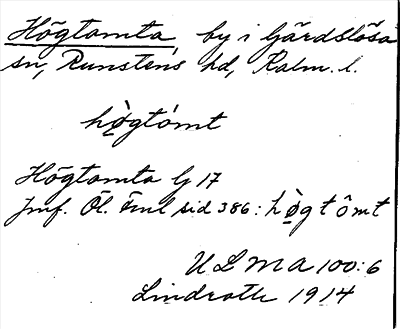 Högtomta by i Gärdslösa
sn, Runstens hd, Kalm. l.
hògtómt
Högtomta G 17
Jmf. Öl. Fml sid 386: hògtômt
ULMA 100:6
Lindroth 1914